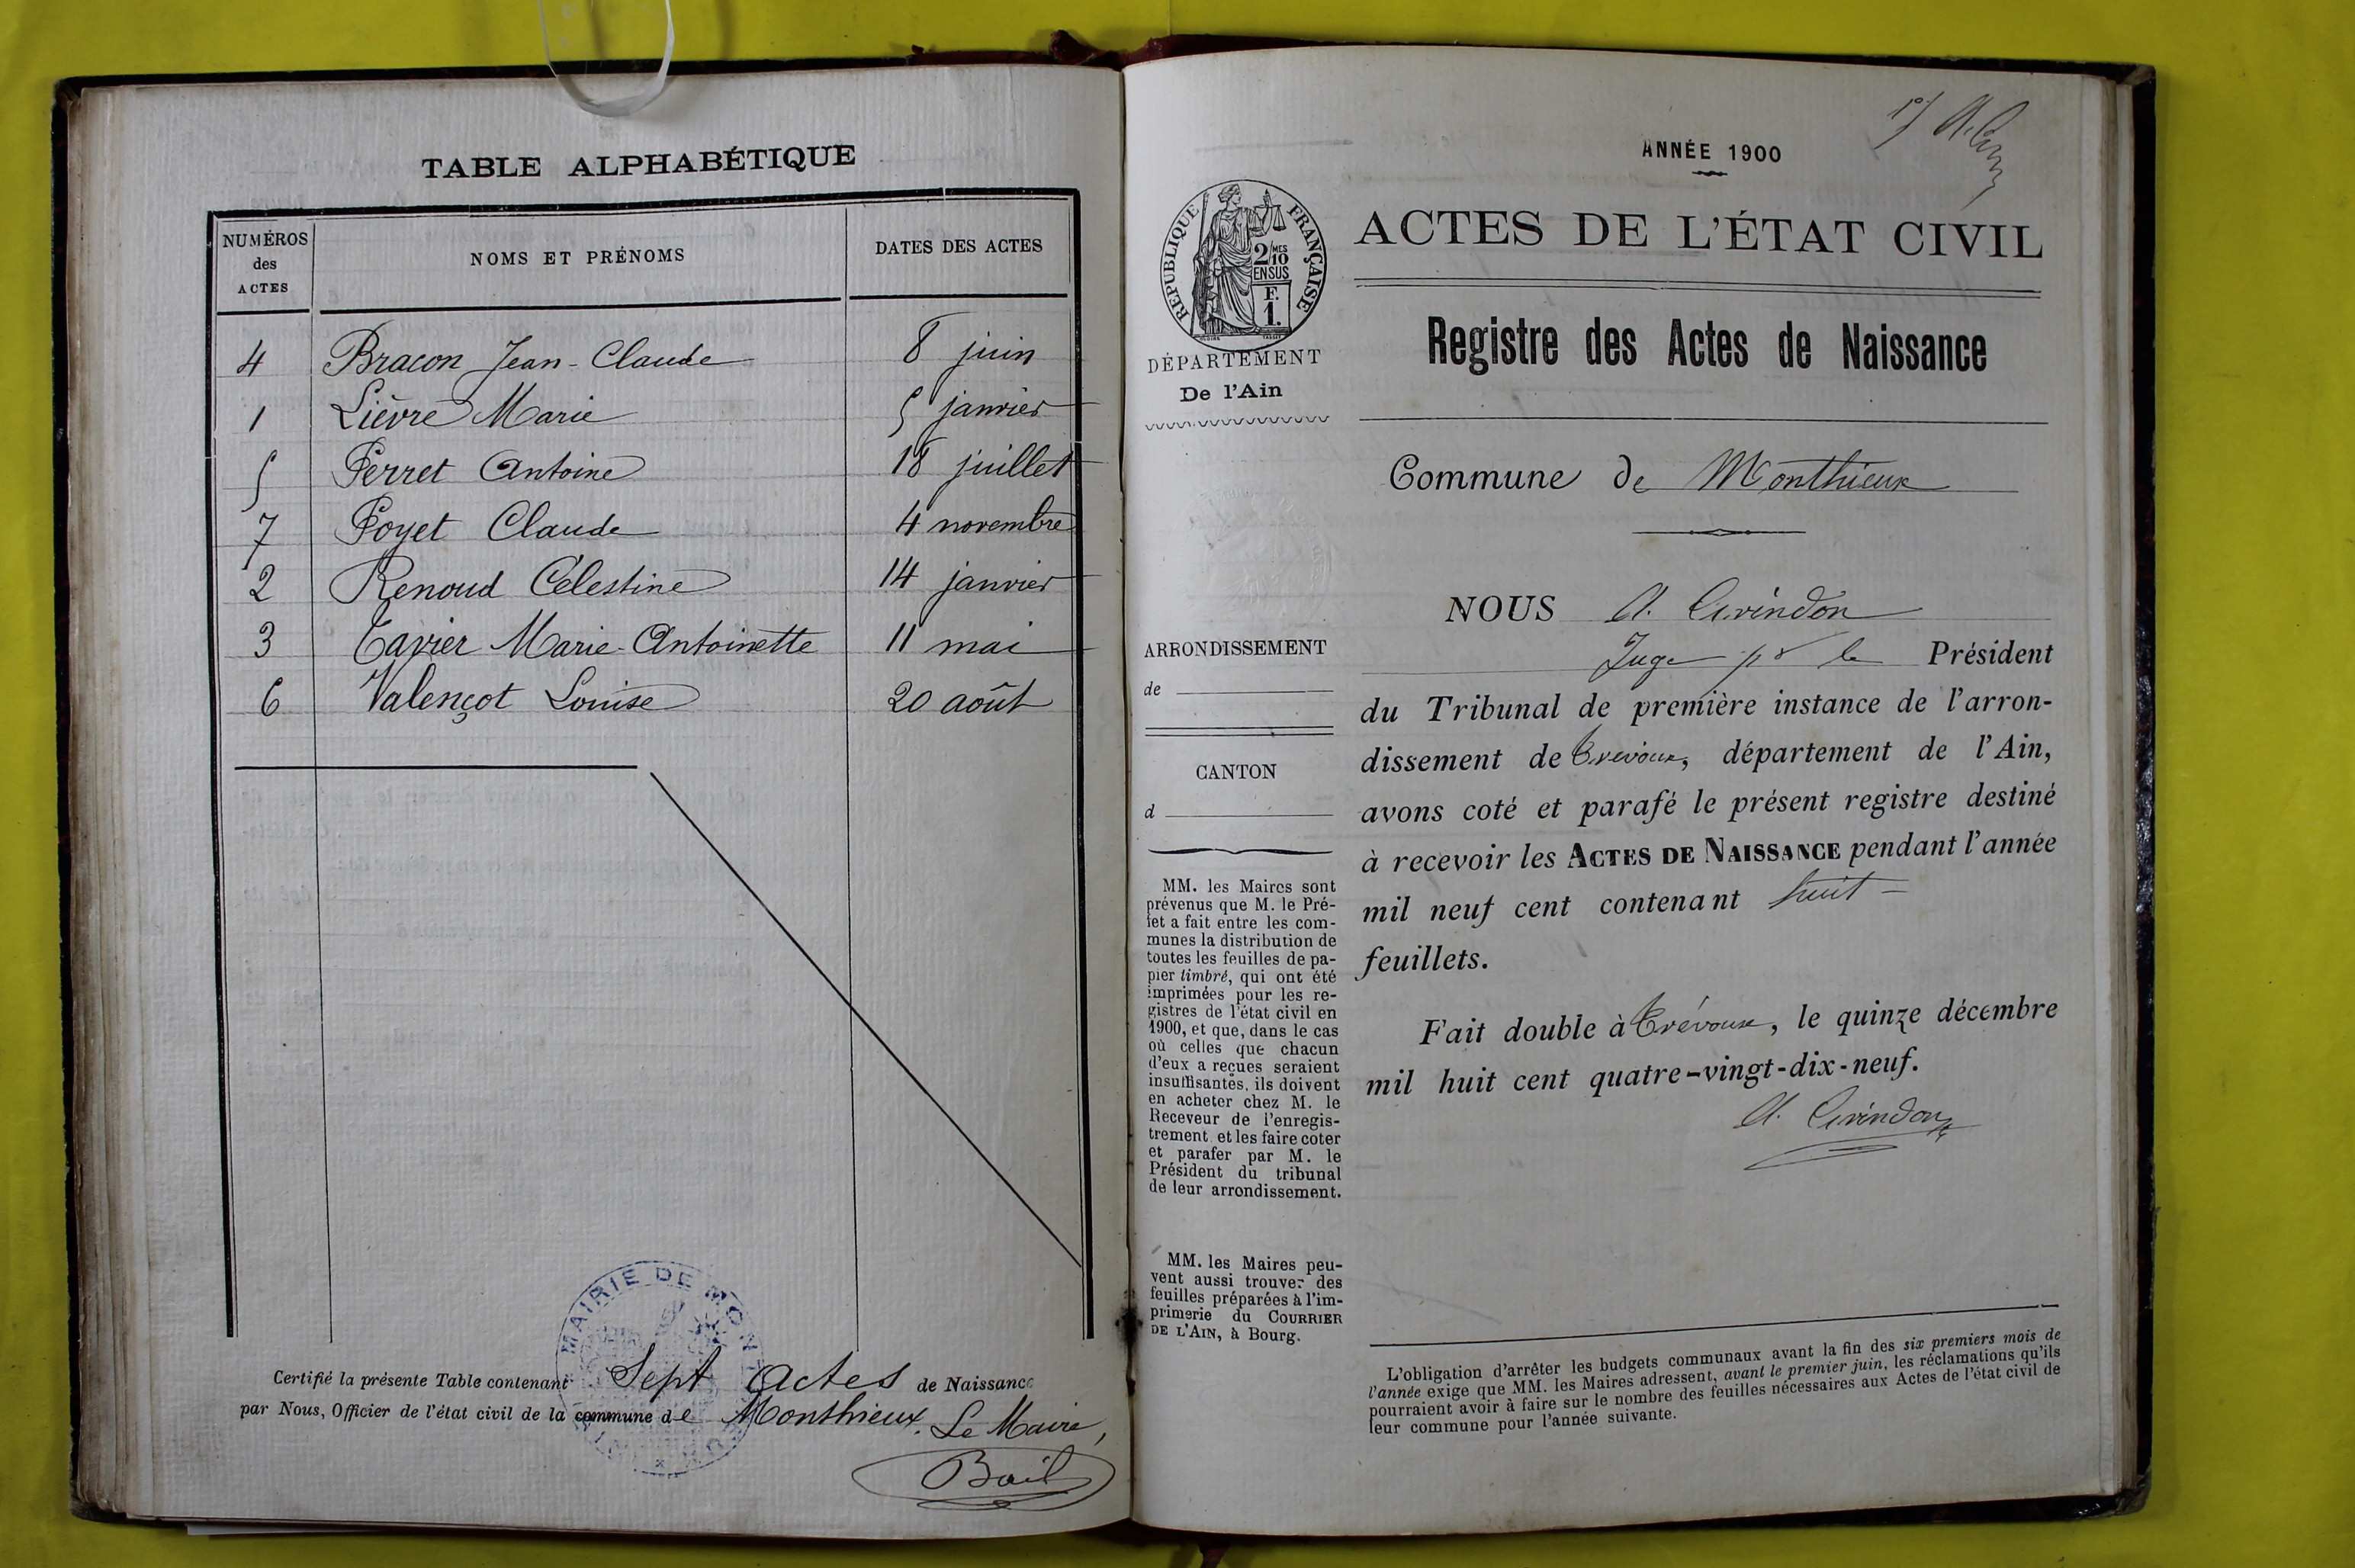 TABLE ALPHABÉTIQUE
NUMÉROS
des
ACTES
NOMS ET PRÉNOMS
DATES DES ACTES
4 Bracon Jean-Claude 8 juin
1 Lièvre Marie 5 janvier
5 Perret Antoine 18 juillet
7 Poyet Claude 4 novembre
2 Renoud Célestine 14 janvier
3 Tavier Marie-Antoinette 11 mai
6 Valençot Louise 20 août
MAIRIE DE
Certifié la présente Table contenant Sept Actes de Naissance
par Nous, Officier de l'état civil de la commune de Monthieux. Le Maire,
Bail
ANNÉE 1900
RÉPUBLIQUE FRANÇAISE
2/10 MES
EN SUS
F.
1.
DÉPARTEMENT
De l'Ain
ARRONDISSEMENT
de
CANTON
d
MM. les Maires sont
prévenus que M. le Pré-
fet a fait entre les com-
munes la distribution de
toutes les feuilles de pa-
pier timbré, qui ont été
imprimées pour les re-
gistres de l'état civil en
1900, et que, dans le cas
où celles que chacun
d'eux a reçues seraient
insuffisantes, ils doivent
en acheter chez M. le
Receveur de l'enregis-
trement et les faire coter
et parafer par M. le
Président du tribunal
de leur arrondissement.
MM. les Maires peu-
vent aussi trouver des
feuilles préparées à l'im-
primerie du COURRIER
DE L'AIN, à Bourg.
ACTES DE L'ÉTAT CIVIL
Registre des Actes de Naissance
Commune de Monthieux
NOUS A.
Juge pr le Président
du Tribunal de première instance de l'arron-
dissement de Trévoux, département de l'Ain,
avons coté et parafé le présent registre destiné
à recevoir les ACTES DE NAISSANCE pendant l'année
mil neuf cent contenant huit
feuillets.
Fait double à Trévoux, le quinze décembre
mil huit cent quatre-vingt-dix-neuf.
A.
L'obligation d'arrêter les budgets communaux avant la fin des six premiers mois de
l'année exige que MM. les Maires adressent, avant le premier juin, les réclamations qu'ils
pourraient avoir à faire sur le nombre des feuilles nécessaires aux Actes de l'état civil de
leur commune pour l'année suivante.